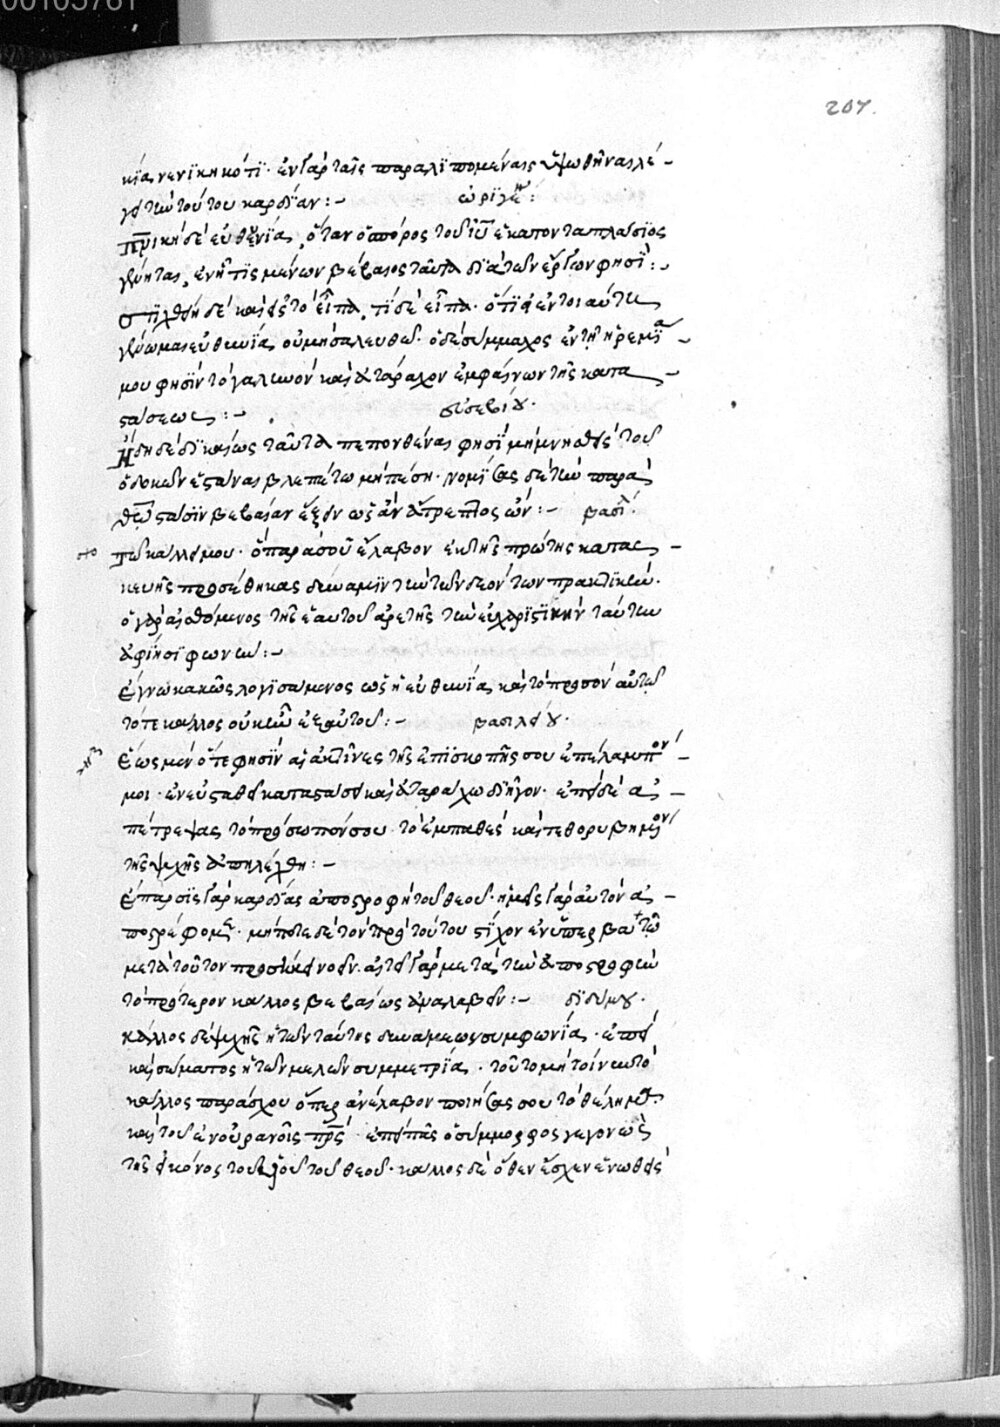 00105761
207.
κίαν ενίκηκότι· ἐν γὰρ ταῖς παραλιπομέναις ὑψωθῆναι λέ-
γει τὴν τούτου καρδίαν:- ὠριγέν:
πνικὴ δέ εὐθηνία, ὅταν ὁ σπόρος τοῦ ιυ ἑκατονταπλασίος
γένηται, ἐν ᾗ τις μένων βέβαιος ταῦτα διὰ τῶν ἔργων φησί:-
εἶπα, τί δὲ εἶπα· ὅτι ἐν τοιαύτῃ
γενωμαι εὐθηνίᾳ οὐ μὴ σαλευθῶ· ὁ δὲ σύμμαχος ἐν τῇ ἠρεμίᾳ-
μου φησὶν τὸ γαληνὸν καὶ ἀτάραχον ἐμφαίνων τῆς κατα-
στάσεως:- εὐσεβίου·
Ἤδη δέ δικαίως ταῦτα πεπονθέναι φησὶ μὴ μνησθεὶς τοῦ
ὁ δοκῶν ἑστάναι βλεπέτω μὴ πέσῃ· νομίσας δὲ τὴν παρὰ
θῶ στάσιν βεβαίαν ἕξειν ὡς ἂν ἄτρεπτος ὤν:- βασιλ·
τῶ κάλλει μου· ὃ παρὰ σοῦ ἔλαβον ἐκ τῆς πρώτης κατασ-
κευῆς προσέθηκας δύναμιν τὴν τῶν δεόντων πρακτικήν·
ὁ γὰρ αἰσθόμενος τῆς ἑαυτοῦ ἀρετῆς τὴν εὐχαριστικὴν ταύτην
ἀφίησι φωνήν:-
Ἔγνω κακῶς λογισάμενος ὡς ἡ εὐθηνία καὶ τὸ προσὸν αὐτῶ
τότε κάλλος οὐκ ἦν ἐξ αὐτοῦ:- βασιλείου·
Ἕως μὲν ὅτε φησὶν αἱ ἀκτῖνες τῆς ἐπισκοπῆς σου ἐπέλαμπόν-
μοι· ἐν εὐσταθεῖ καταστάσει καὶ ἀταράχω διῆγον· ἐπεὶ δὲ ἀ-
πέτρεψας τὸ πρόσωπόν σου· τὸ ἐμπαθὲς καὶ τεθορυβημένον
τῆς ψυχῆς ἀπηλέγχθη:-
Ἔπαρσις γὰρ καρδίας ἀποστροφὴ τοῦ θεοῦ· ἡμεῖς γὰρ αὐτὸν ἀ-
ποστρέφομεν· μήποτε δὲ τὸν πρὸ τούτου στίχον
μετὰ τοῦτον· αἰτεῖ γὰρ μετὰ τὴν ἀποστροφὴν
τὸ πρότερον κάλλος βεβαίως ἀναλαβεῖν:- διδύμου·
κάλλος δὲ ψυχῆς ἡ τῶν ταύτης δυνάμεων συμφωνία· ἐπεὶ
καὶ σώματος ἡ τῶν μελῶν συμμετρία· τοῦτο μὴ τοίνυν τὸ
κάλλος παράσχου ὅπερ ἀνέλαβον ποιήσας σου τὸ θέλημα·
καὶ τοῦ ἐν οὐρανοῖς πρς· ἐπεὶ πᾶς ὁ σύμμορφος γεγονὼς
τῆς εἰκόνος τοῦ υἱοῦ τοῦ θεοῦ· κάλλος δὲ ὅθεν ἔσχεν ἑνωθεὶς